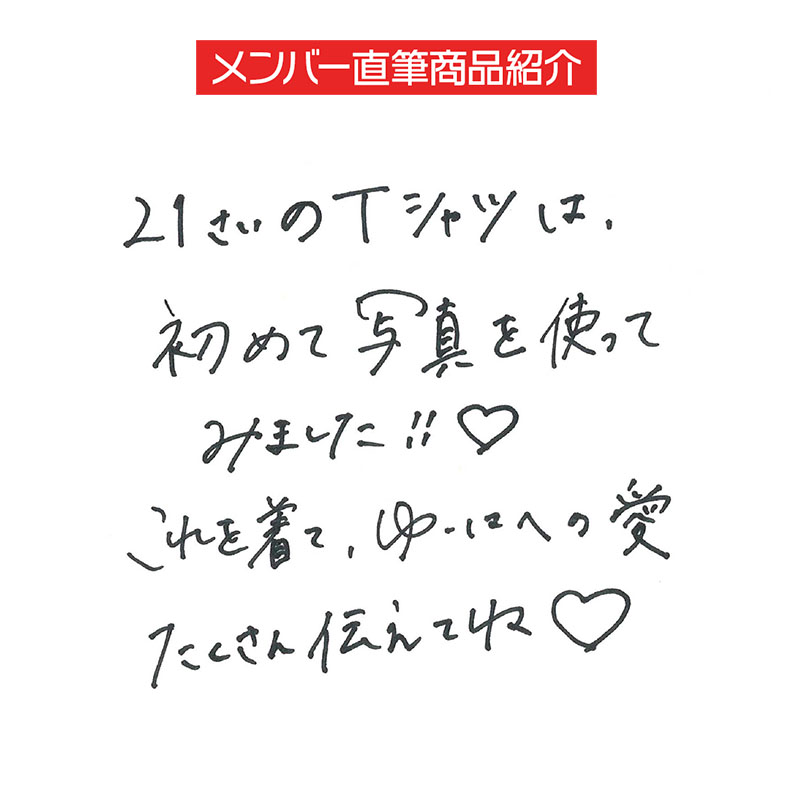 メンバー直筆商品紹介
21さいのTシャツは、
初めて写真を使って
みました!!♡
これを着て、ゆーはへの愛
たくさん伝えてね♡